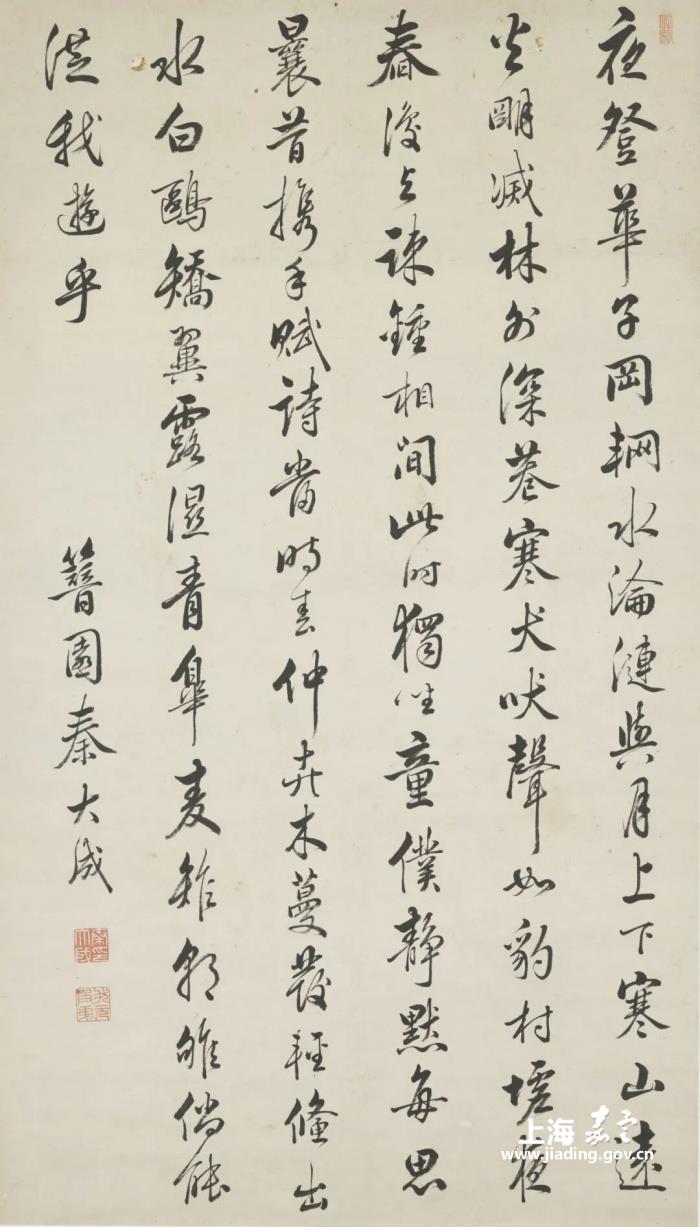 夜登華子岡輞水淪漣與月上下寒山遠
火朙滅林外深巷寒犬吠聲如豹村墟夜
舂復与疎鐘相間此时獨坐童僕靜默每思
曩昔携手賦詩當時春仲卉木蔓發輕鯈出
水白鷗矯翼露濕青皋麦雉朝雊倘能
從我遊乎
簪園秦大成
上海嘉定
www.jiading.gov.cn